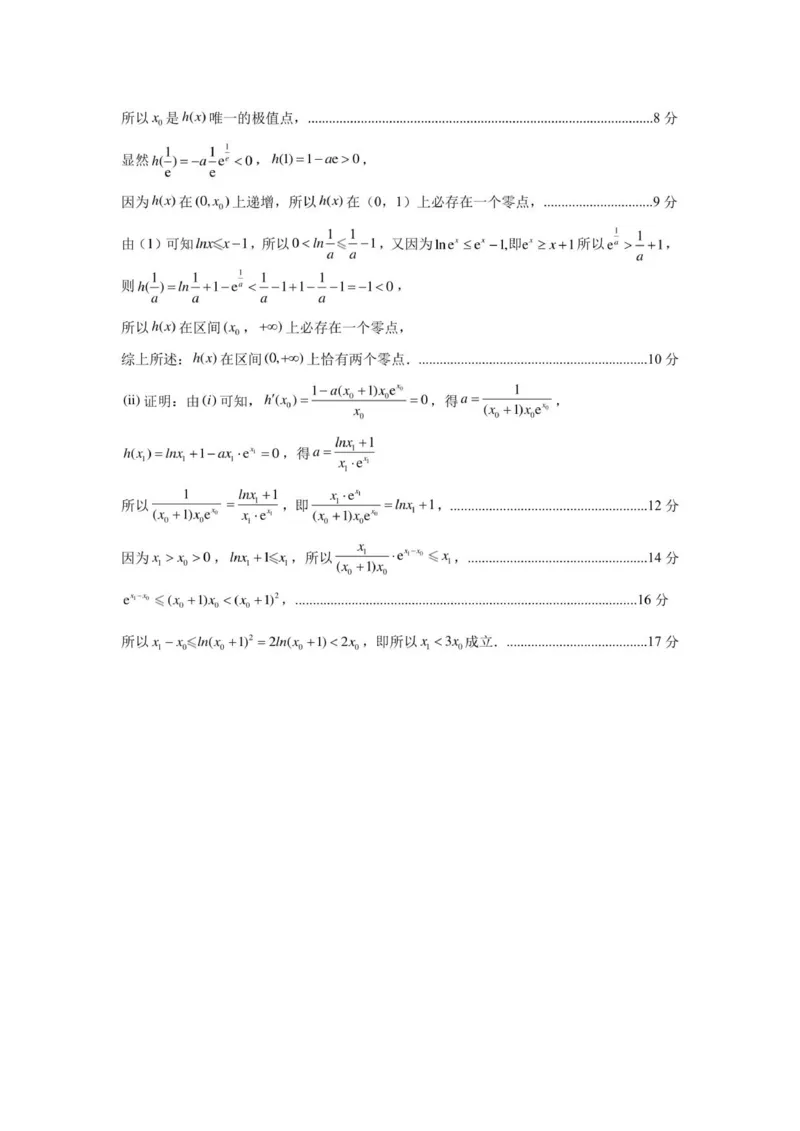 所以x₀是h(x)唯一的极值点，..................................................................................................8 分
显然h(1/e)=−a 1/e e^(1/e)<0，h(1)=1−ae>0，
因为h(x)在(0,x₀)上递增，所以h(x)在（0，1）上必存在一个零点，...............................9 分
由（1）可知lnx⩽x−1，所以0<ln 1/a ⩽ 1/a −1，又因为lneˣ ≤eˣ −1,即eˣ ≥ x+1所以e^(1/a) > 1/a +1，
则h(1/a)=ln 1/a +1−e^(1/a) < 1/a −1+1− 1/a −1=−1<0，
所以h(x)在区间(x₀，+∞)上必存在一个零点，
综上所述：h(x)在区间(0,+∞)上恰有两个零点．.................................................................10 分
(ii)证明：由(i)可知，h′(x₀)= (1−a(x₀+1)x₀e^(x₀))/x₀ =0，得a= 1/((x₀+1)x₀e^(x₀))，
h(x₁)=lnx₁+1−ax₁·e^(x₁) =0，得a= (lnx₁+1)/(x₁·e^(x₁))
所以 1/((x₀+1)x₀e^(x₀)) = (lnx₁+1)/(x₁·e^(x₁))，即 (x₁·e^(x₁))/((x₀+1)x₀e^(x₀)) =lnx₁+1，........................................................12 分
因为x₁>x₀>0，lnx₁+1⩽x₁，所以 x₁/((x₀+1)x₀) ·e^(x₁−x₀) ⩽x₁，...................................................14 分
e^(x₁−x₀) ⩽(x₀+1)x₀<(x₀+1)²，.................................................................................................16 分
所以x₁−x₀⩽ln(x₀+1)²=2ln(x₀+1)<2x₀，即所以x₁<3x₀成立．........................................17 分